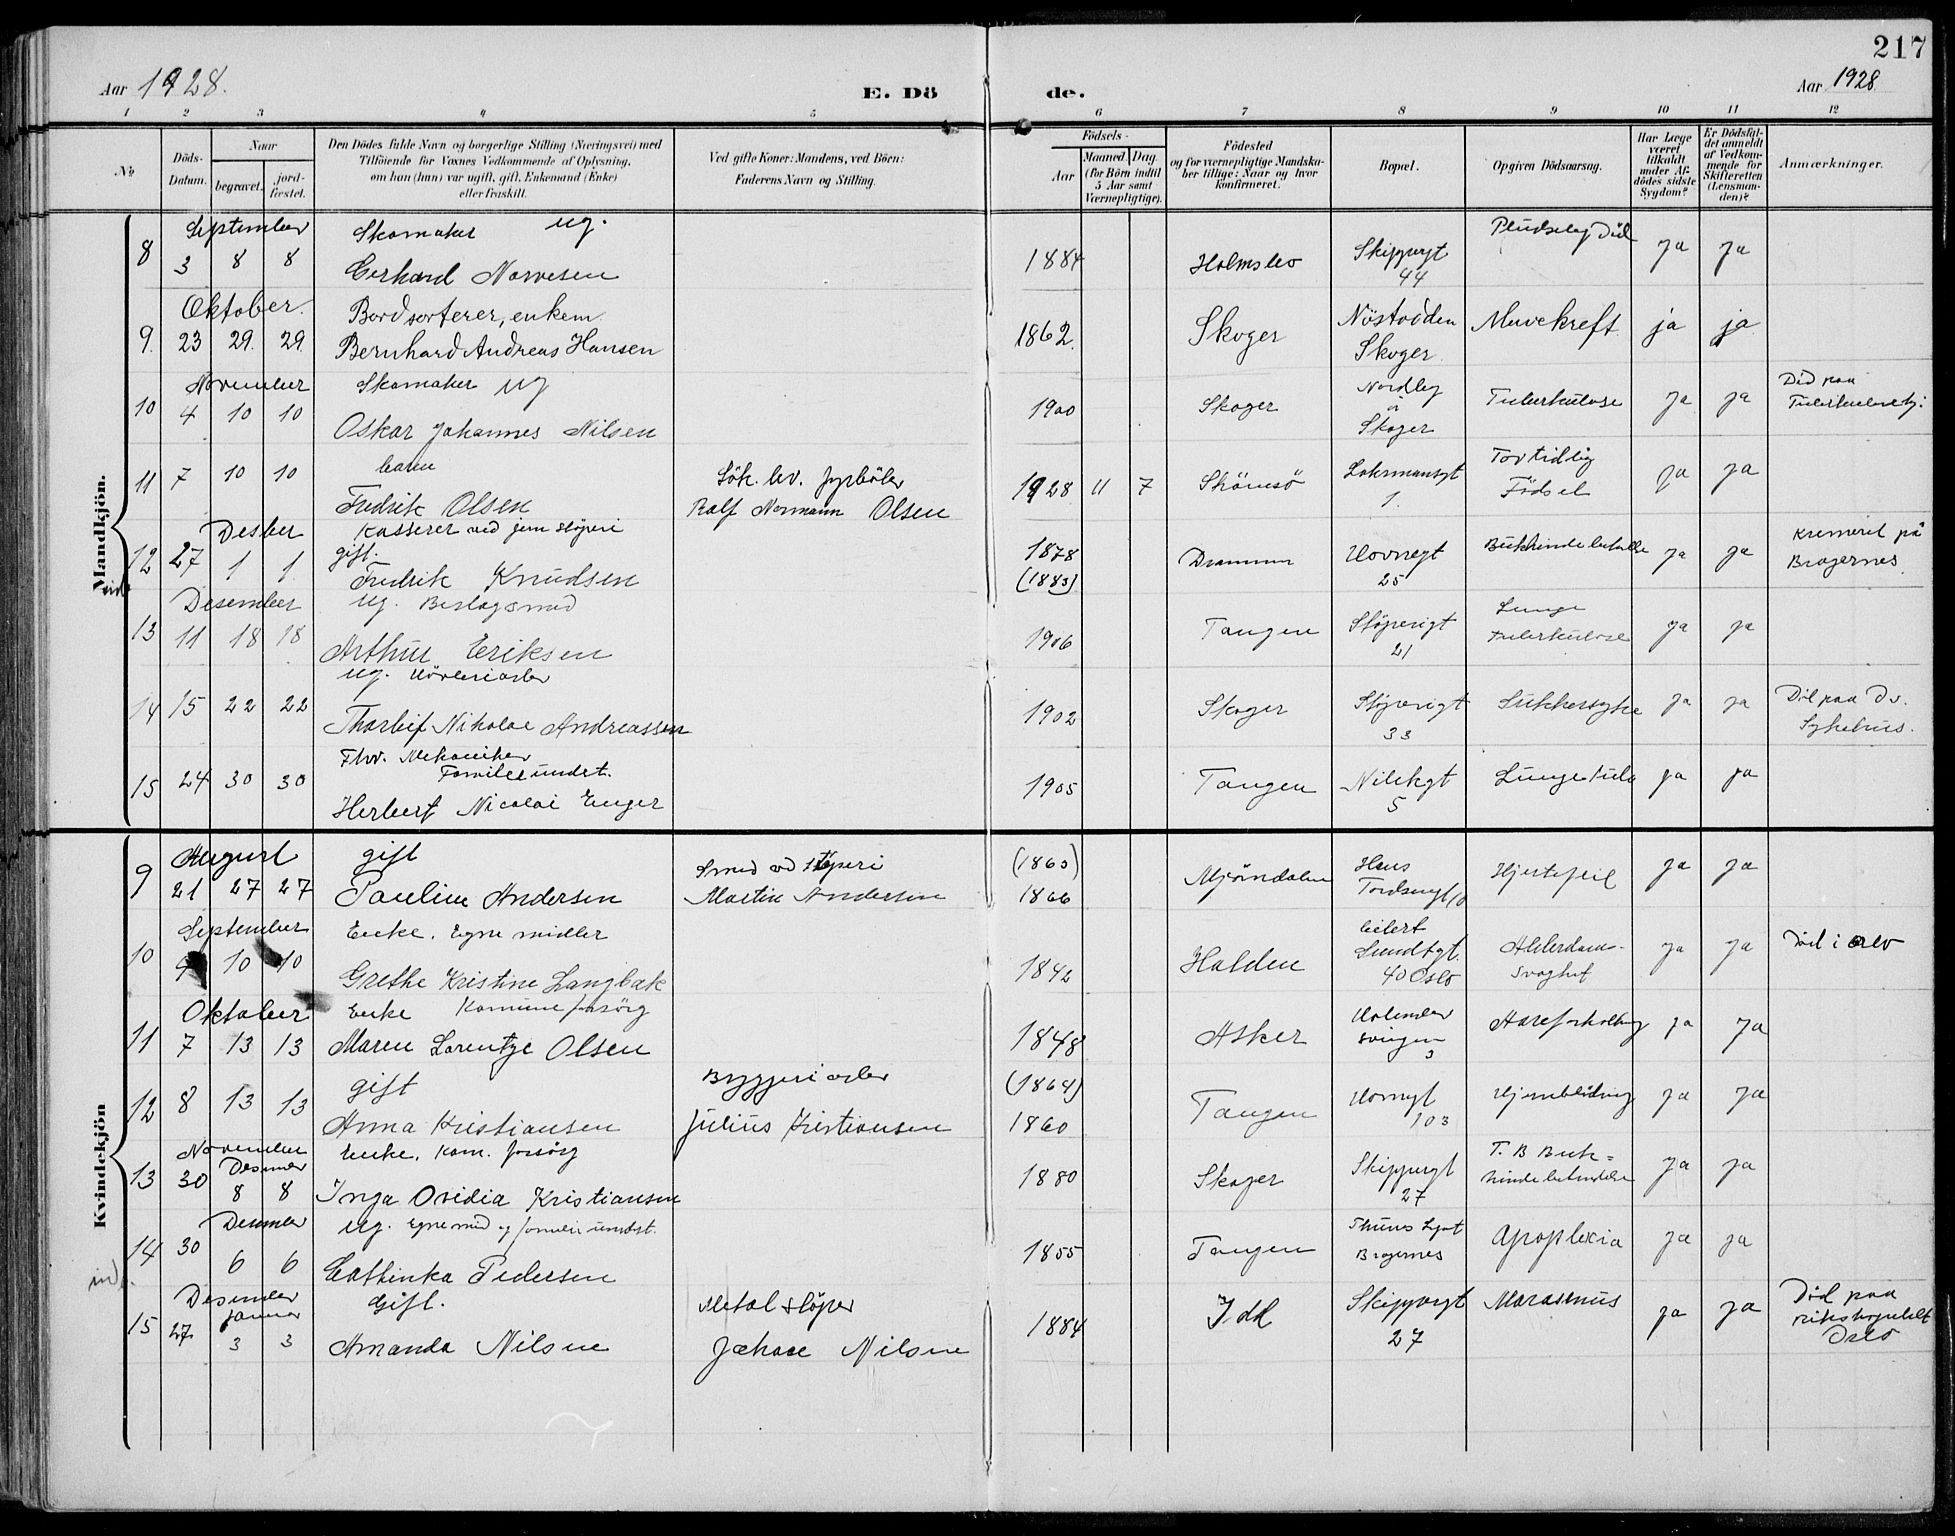 217
Aar 1928.
E. Dö
de.
Aar 1928
1 2 3 4 5 6 7 8 9 10 11 12
No
Döds-Datum.
Naar
begravet.
jord-fæstet.
Den Dödes fulde Navn og borgerlige Stilling (Næringsvei) med
Tilföiende for Voxnes Vedkommende af Oplysning,
om han (hun) var ugift, gift, Enkemand (Enke)
eller fraskilt.
Ved gifte Koner: Mandens, ved Börn:
Faderens Navn og Stilling.
Födsels-
Aar
Maaned. Dag.
(for Börn indtil
5 Aar samt
Værnepligtige).
Födested
og for værnepligtige Mandska-
ber tillige: Naar og hvor
konfirmeret.
Bopæl.
Opgiven Dödsaarsag.
Har Læge
været
tilkaldt
under Af-
dödes sidste
Sygdom?
Er Dödsfal-
det anmeldt
af Vedkom-
mende for
Skifteretten
(Lensman-
den)?
Anmærkninger.
Mandkjön.
September Skomaker ug. Pludselig Död
8 3 8 8 Gerhard Norvesen 1884 Holmsbo Skippergt 44 ja ja
Oktober. Bordsorterer, enkem.
9. 23 29. 29. Bernhard Andreas Hansen 1862. Skoger Nöstodden Skoger. Mavekreft. ja ja
November Skomaker ug
10 4 10 10 Oskar Johannes Nilsen 1900 Skoger Nordby i Skoger Tuberkulose ja ja Död paa
barn
11 7 10 10 Fredrik Olsen Rolf Normann Olsen 1928 11 7 1. For tidlig Födsel ja ja
Desber Kasserer ved jern stöperi
12 27 1 1 gift. Fredrik Knudsen 1878 (1883) Drammen Havnegt 25 ja ja kremert på Bragernes
Desember ug. Beslagsmed
13 11 18 18 Arthur Eriksen 1906 Tangen Stöperigt 21 Lunge Tuberkulose ja ja
ug. Hövleriarb
14 15 22 22 Thorleif Nikolai Andreassen 1902 Skoger Stöperigt 33 Sukkersyke ja ja Död paa Dr. Sykehus.
Fhv. Mekaniker
Familieunderst.
15 24 30 30 Herbert Nicolai Enger 1905 Tangen 5 Lunge tub ja ja
Kvindekjön
August gift Smed ved stöperi (1865)
9 21 27 27 Pauline Andersen Martin Andersen 1866 Mjöndalen Hans Tordsensgt 10 Hjertefeil ja ja
September Enke. Egne midler
10 10 10 Grethe Kristine Langbak 1842 Halden Eilert Sundtgt. 40 Oslo Alderdoms-svaghet ja ja Död i Oslo
Oktober Enke Komune forsörg
11 7 13 13 Maren Lorentze Olsen 1848 Asker svingen 3 Aareforkalkning ja ja
gift Byggeriarb (1864)
12 8 13 13 Anna Kristiansen Julius Kristiansen 1860 Tangen Havnegt 103 Hjerneblödning ja ja
November Desember Enke. Kom. forsörg
13 30 8 8 Inga Ovidia Kristiansen 1880 Skoger Skippergt 27 T. B Buk=hindebetendelse ja ja
Desember Ug. Egne mid og familie underst.
14 30 6 6 Cathinka Pedersen 1855 Tangen Thunes Legat Bragernes Apoplexia ja ja
Desember Januar Gift. Metal stöper
15 27 3 3 Amanda Nilsen Johan Nilsen 1884 Idd Skippergt 27 Marasmus ja ja Död paa rikshospitalet Oslo